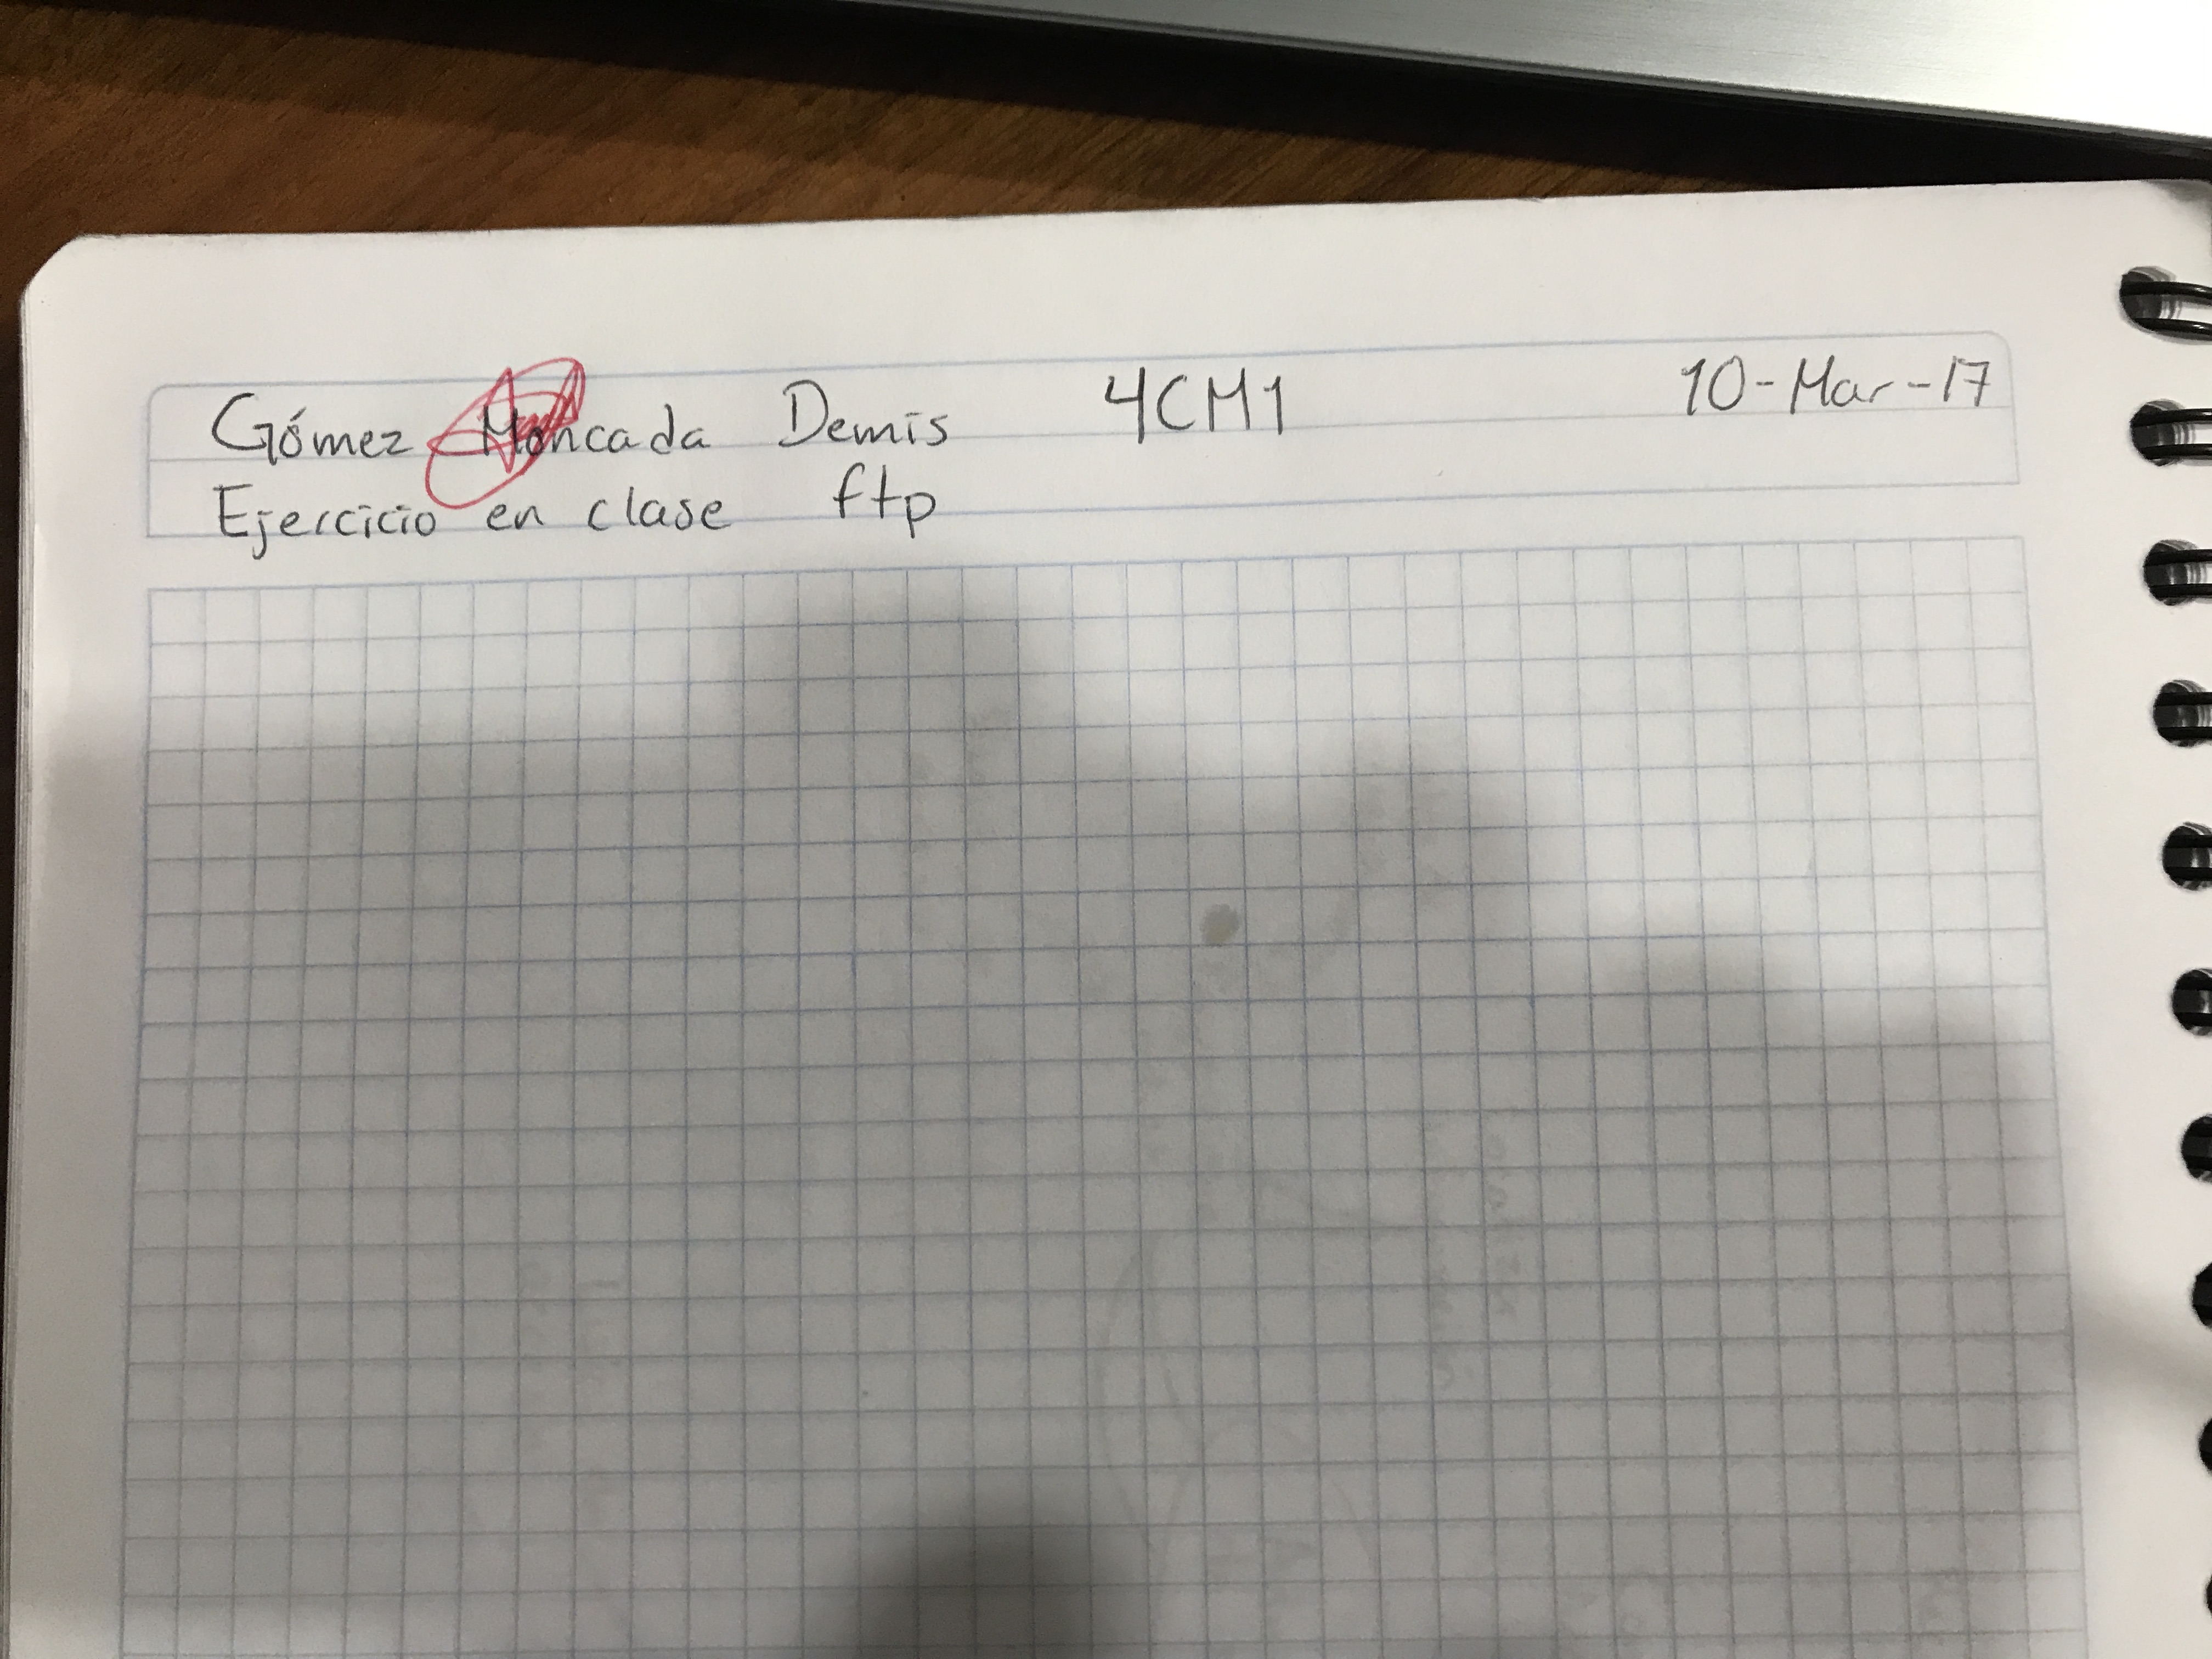 Gómez Moncada Demis 4CM1 10-Mar-17
Ejercicio en clase ftp